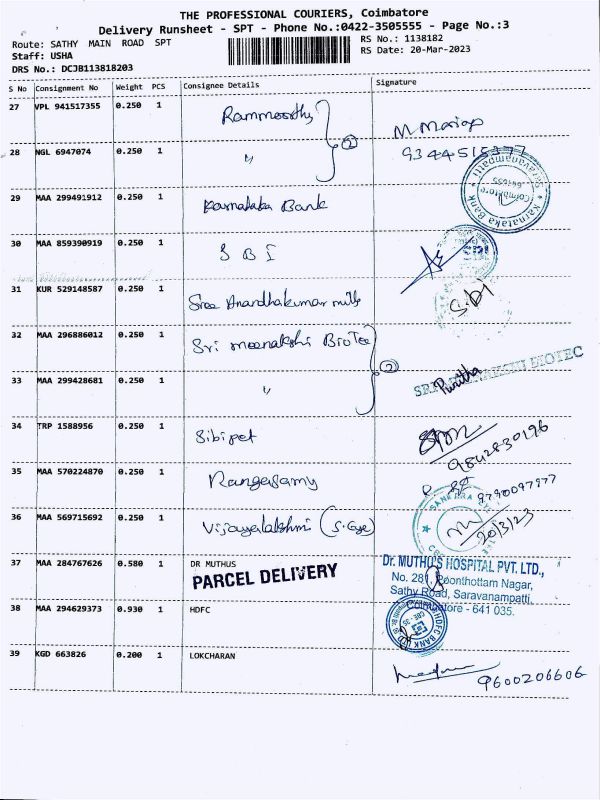 THE PROFESSIONAL COURIERS, Coimbatore
Delivery Runsheet - SPT - Phone No.:0422-3505555 - Page No.:3
Route: SATHY MAIN ROAD SPT
RS No.: 1138182
Staff: USHA
RS Date: 20-Mar-2023
DRS No.: DCJB113818203
S No Consignment No Weight PCS Consignee Details Signature
27 VPL 941517355 0.250 1 Rammoorthy
M Mariap
28 NGL 6947074 0.250 1 " 2
Saravanampatti
Coimbatore
641035
Karnataka Bank
29 MAA 299491912 0.250 1 Karnataka Bank
30 MAA 859390919 0.250 1 S B I
31 KUR 529148587 0.250 1 Sree Anandhakumar mills
32 MAA 296886012 0.250 1 Sri meenakshi BioTec
33 MAA 299428681 0.250 1 " 2
BIOTEC
34 TRP 1588956 0.250 1 Sibi pet
9842830196
35 MAA 570224870 0.250 1 Rangasamy
9790097977
36 MAA 569715692 0.250 1 Vijayalakshmi (S.Eye)
SANKARA
20/3/23
37 MAA 284767626 0.580 1 DR MUTHUS
PARCEL DELIVERY
Dr. MUTHU'S HOSPITAL PVT. LTD.,
No. 281, Poonthottam Nagar,
Sathy Road, Saravanampatti,
Coimbatore - 641 035.
38 MAA 294629373 0.930 1 HDFC
HDFC BANK
39 KGD 663826 0.200 1 LOKCHARAN
9600206606